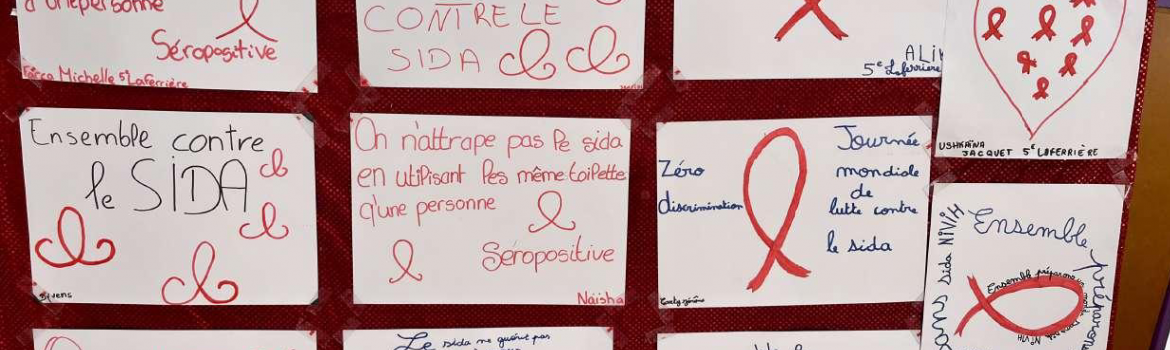 d'une personne
Séropositive
Michelle 5e Laferrière
CONTRE LE
SIDA
ALi
5e Laferrière
USHKAÏNA
JACQUET 5e LAFERRIÈRE
Ensemble contre
le SIDA
On n'attrape pas le sida
en utilisant les même toilette
q'une personne
Séropositive
Naisha
Zéro
discrimination
Journée
mondiale
de
lutte contre
le sida
Ensemble préparons
sans sida Ni ViH
Le sida ne guérit pas